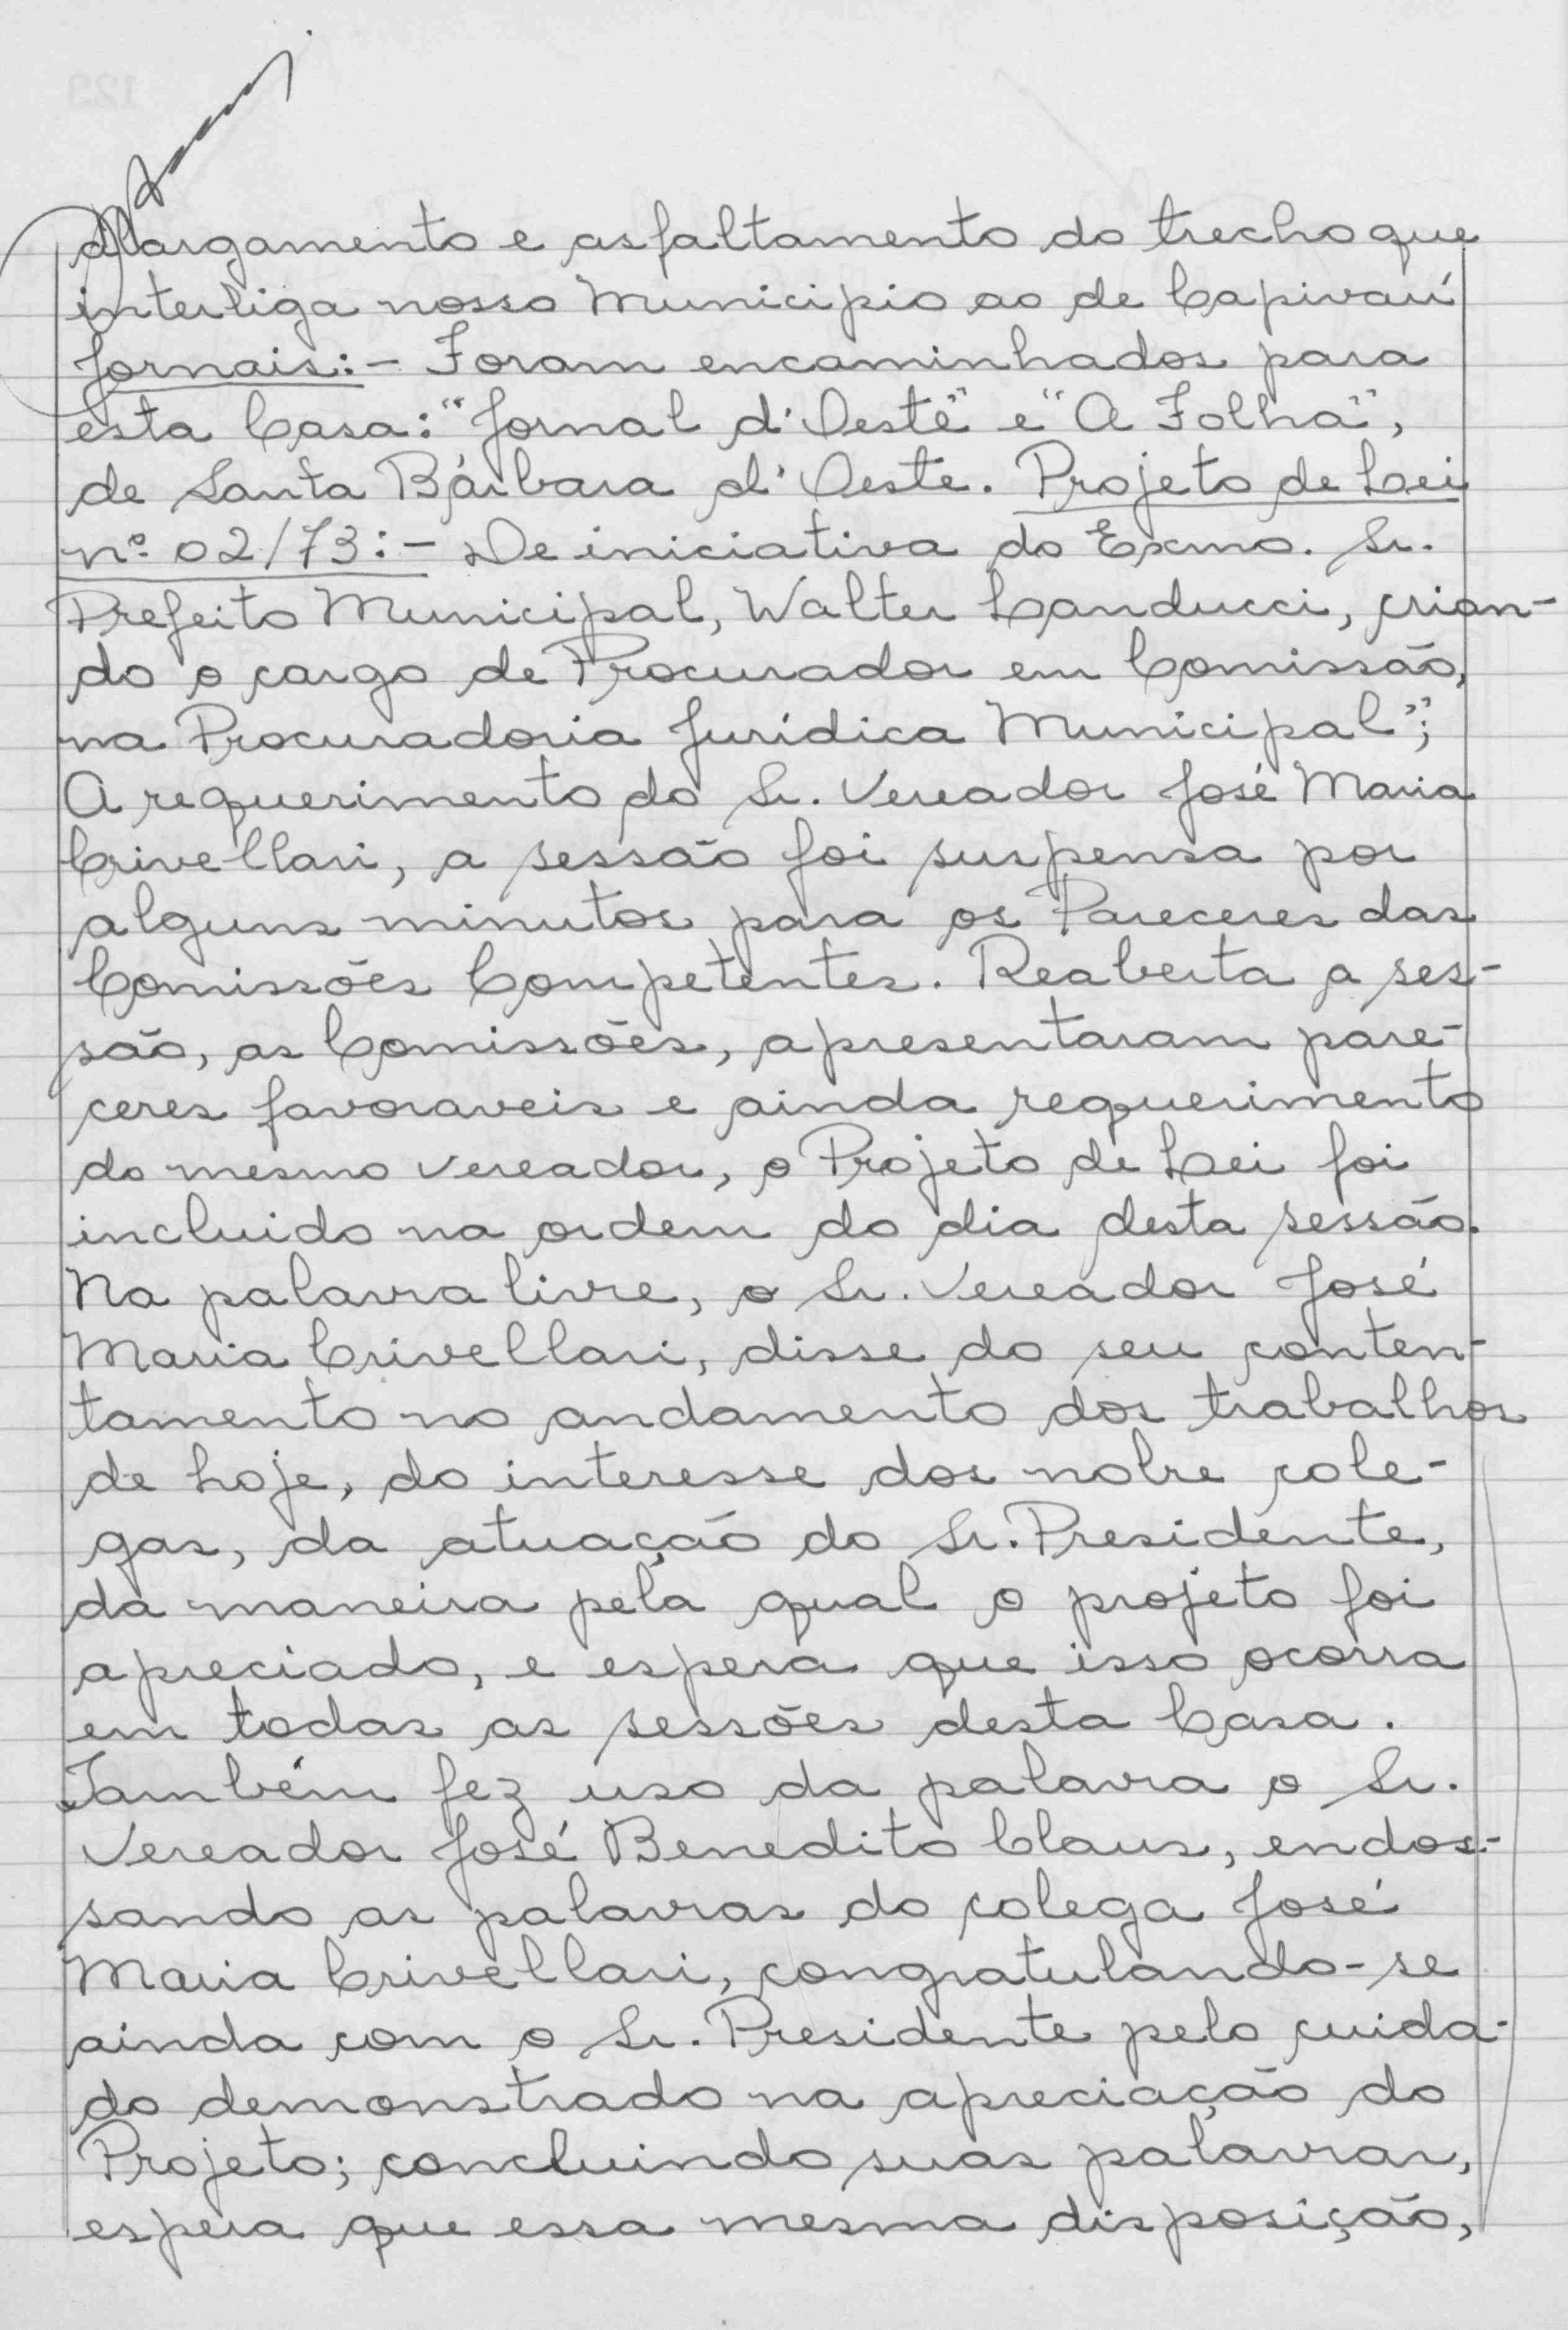 alargamento e asfaltamento do trecho que
interliga nosso Municipio ao de Capivarí
Jornais:- Foram encaminhados para
esta Casa: "Jornal d'Oeste" e "A Folha",
de Santa Bárbara d'Oeste. Projeto de Lei
nº 02/73:- De iniciativa do Exmo. Sr.
Prefeito Municipal, Walter Landucci, crian-
do o cargo de Procurador em Comissão,
na Procuradoria Jurídica Municipal";
A requerimento do Sr. Vereador José Maria
Crivellari, a sessão foi suspensa por
alguns minutos para os Pareceres das
Comissões Competentes. Reaberta a ses-
são, as Comissões, apresentaram pare-
ceres favoraveis e ainda requerimento
do mesmo vereador, o Projeto de Lei foi
incluido na ordem do dia desta sessão.
Na palavra livre, o Sr. Vereador José
Maria Crivellari, disse do seu conten-
tamento no andamento dos trabalhos
de hoje, do interesse dos nobre cole-
gas, da atuação do Sr. Presidente,
da maneira pela qual o projeto foi
apreciado, e espera que isso ocorra
em todas as sessões desta Casa.
Também fez uso da palavra o Sr.
Vereador José Benedito Claus, endos-
sando as palavras do colega José
Maria Crivellari, congratulando-se
ainda com o Sr. Presidente pelo cuida-
do demonstrado na apreciação do
Projeto; concluindo suas palavras,
espera que essa mesma disposição,